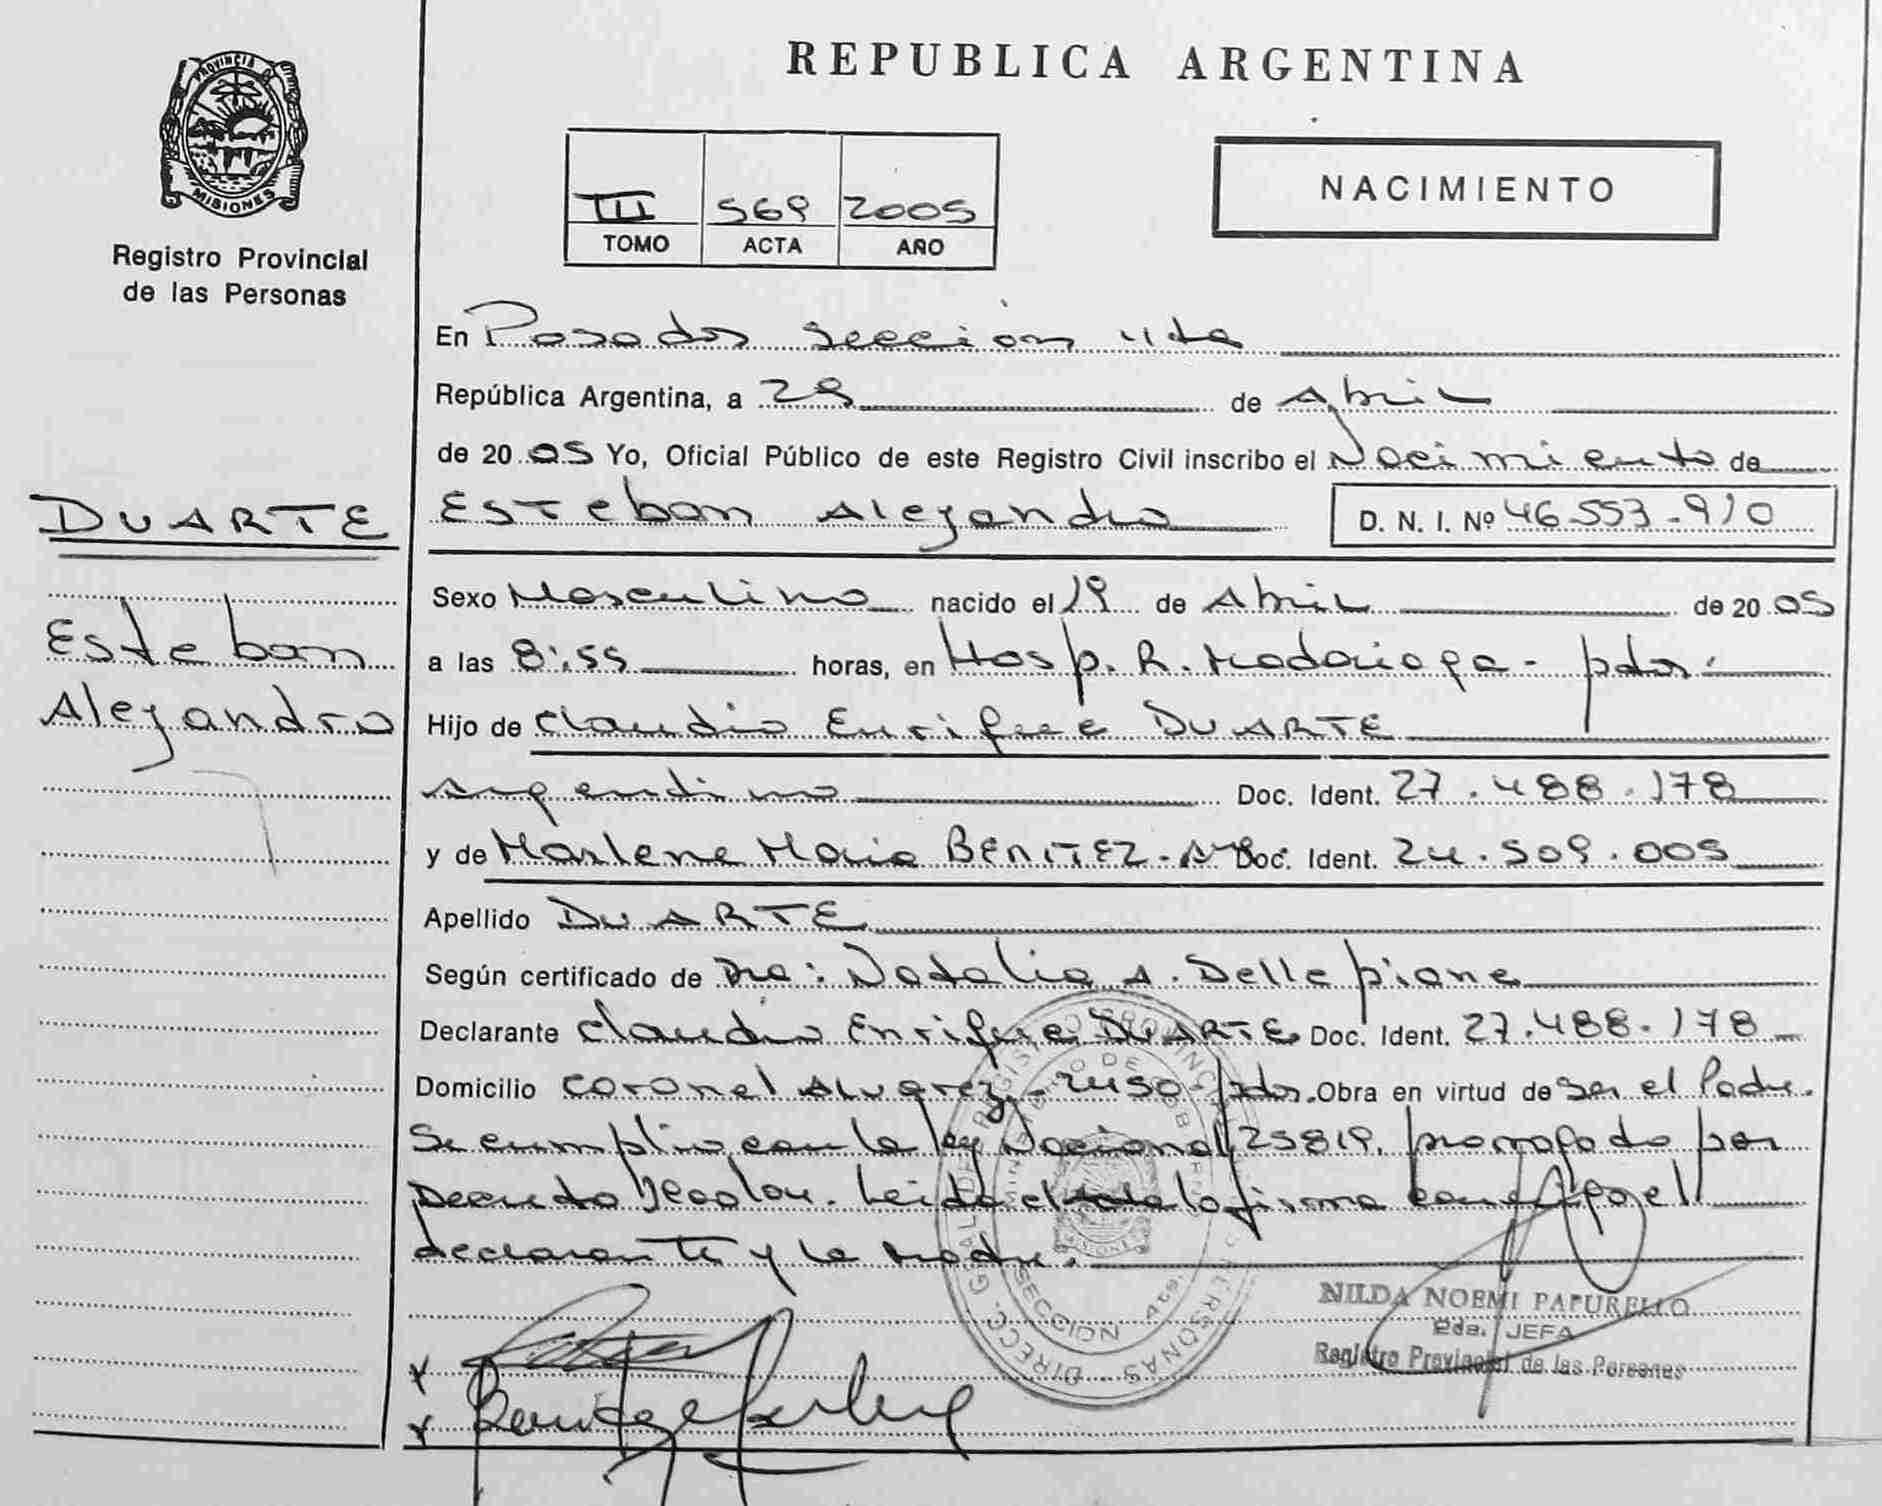 PROVINCIA DE
MISIONES
Registro Provincial
de las Personas
REPUBLICA ARGENTINA
III 569 2005
TOMO ACTA AÑO
NACIMIENTO
En Posadas sección 4ta
República Argentina, a 29 de Abril
de 2005 Yo, Oficial Público de este Registro Civil inscribo el Nacimiento de
Esteban Alejandro D. N. I. Nº 46.553.910
DUARTE
Esteban
Alejandro
Sexo Masculino nacido el 19 de Abril de 2005
a las 8:55 horas, en Hosp. R. Madariaga - pdas.
Hijo de Claudio Enrique DUARTE
argentino Doc. Ident. 27.488.178
y de Marlene Maria BENITEZ - Doc. Ident. 24.509.005
Apellido DUARTE
Según certificado de Dra: Natalia A. Dellepiane
Declarante Claudio Enrique DUARTE Doc. Ident. 27.488.178
Domicilio Coronel Alvarez - 2450 - pdas. Obra en virtud de ser el Padre.
Se cumplio con la ley Nacional 25819. prorrogado por
Decreto Leida el acta la firma conmigo el
declarante y la madre.
DIRECC. GRAL. DE REGISTRO PROVINCIAL PERSONAS
MINISTERIO DE GOBIERNO
MISIONES
SECCION 4ta.
NILDA NOEMI PAPURELLO
2da. JEFA
Registro Provincial de las Personas